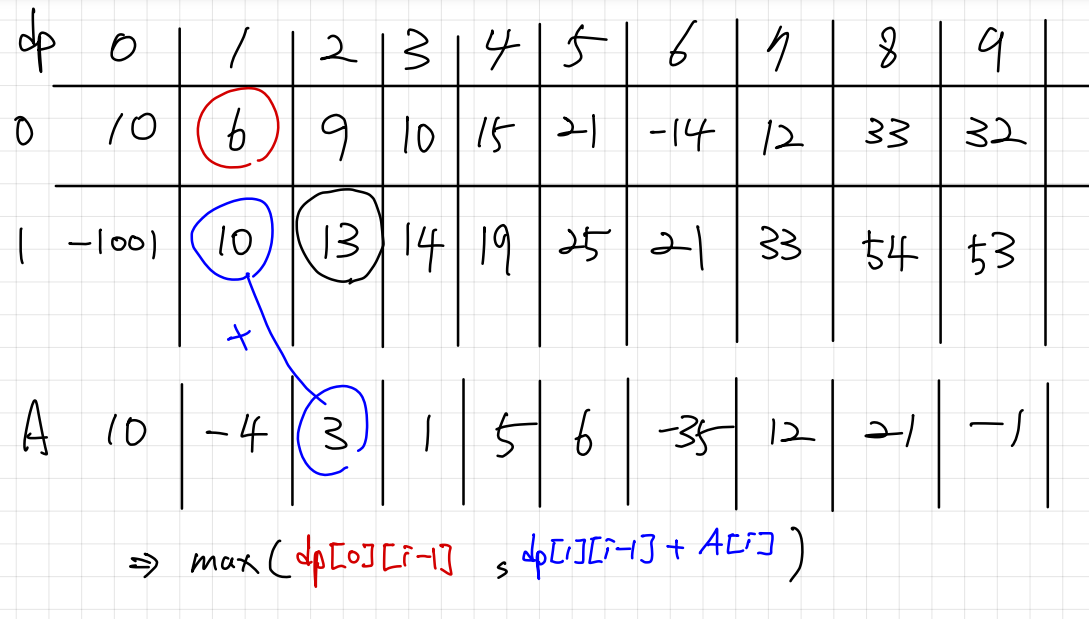 dp 0 1 2 3 4 5 6 7 8 9
0 10 6 9 10 15 21 -14 12 33 32
1 -1001 10 13 14 19 25 21 33 54 53
+
A 10 -4 3 1 5 6 -35 12 21 -1
⇒ max(dp[0][i-1] , dp[1][i-1] + A[i])